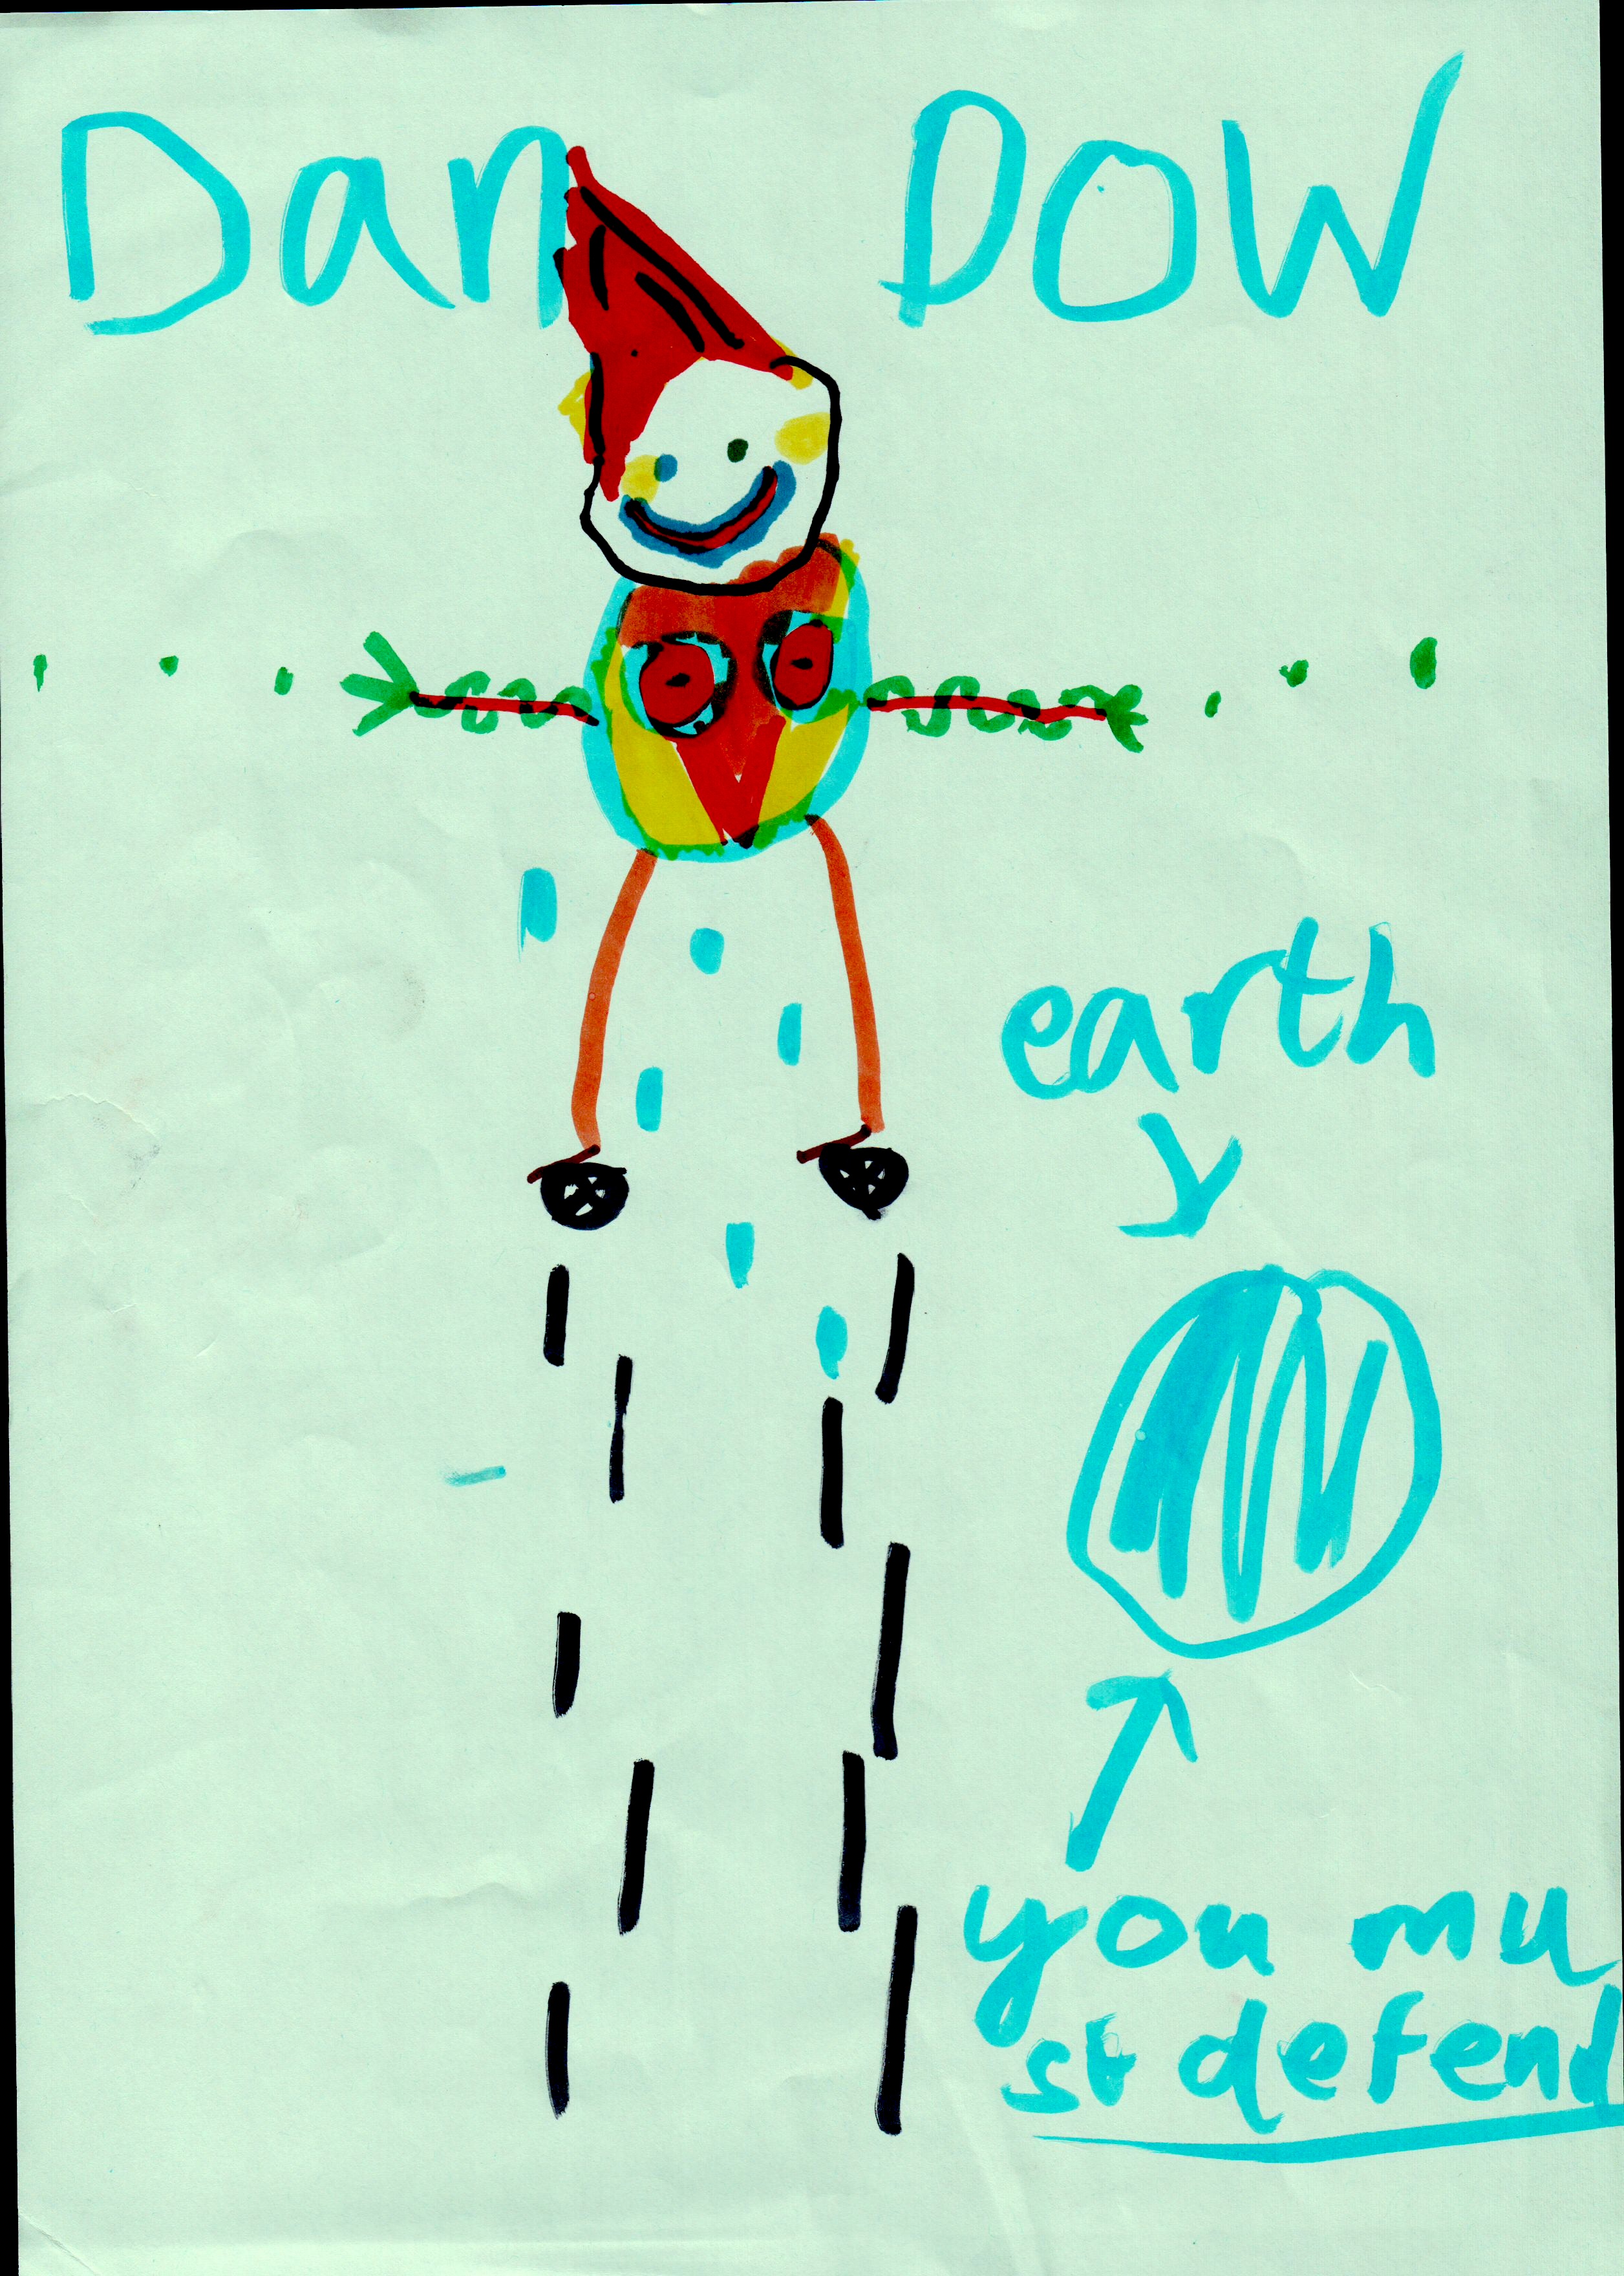 Dan Dow
earth
you mu
st defend